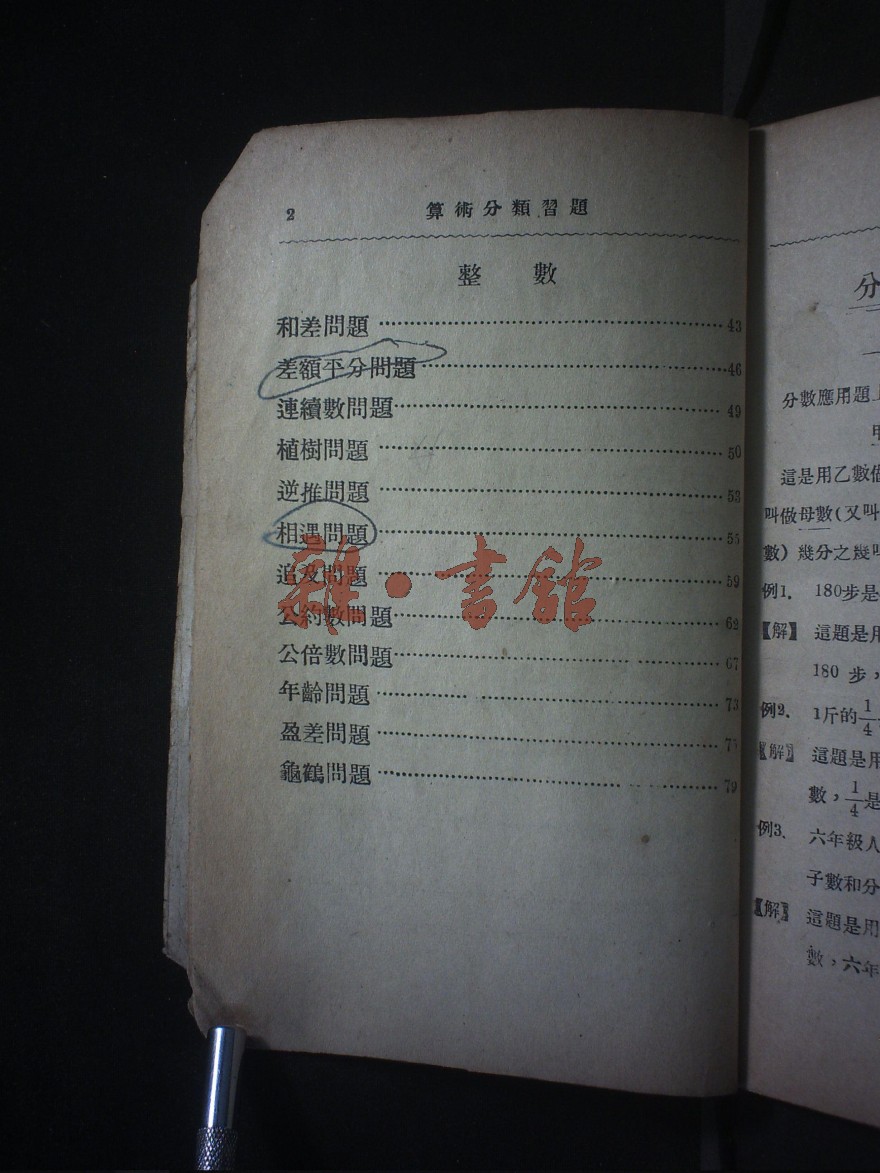 2 算術分類習題
整 數
和差問題 43
差額平分問題 46
連續數問題 49
植樹問題 50
逆推問題 53
相遇問題 55
追及問題 59
公約數問題 62
公倍數問題 67
年齡問題 73
盈差問題
龜鶴問題 79
雜·書館
分
分數應用題
這是用乙數
叫做母數(又叫
數)幾分之幾叫
例1. 180步是
【解】 這題是用
180 步,
例2. 1斤的1/4
【解】 這題是用
數,1/4是
例3. 六年級人
子數和分
【解】 這題是用
數,六年